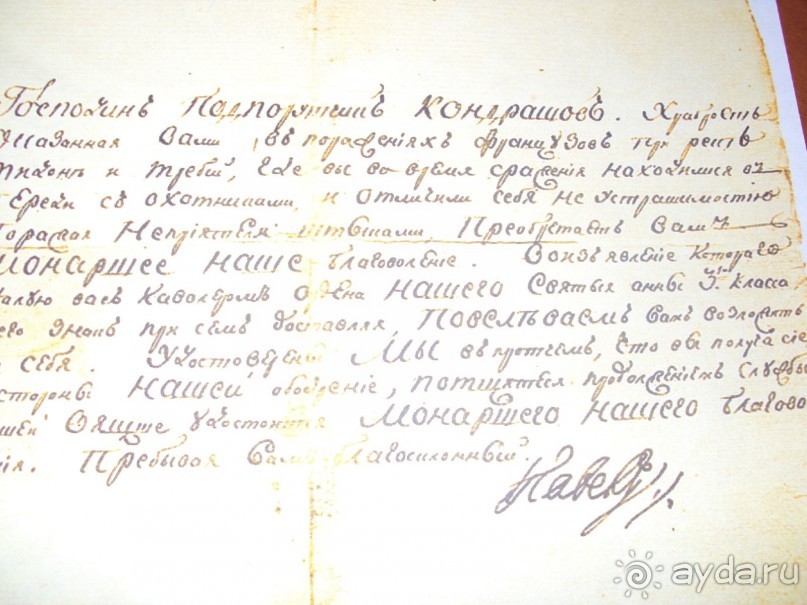 Господинъ Подпорутчикъ Кондрашовъ. Храбрость
оказанная Вами, въ пораженіяхъ французовъ при рекѣ
Тидонѣ и Требіи, где вы во время сраженія находилися въ
переди съ охотниками, и отличили себя неустрашимостію
поражая Непріятеля штыками, Преобретаетъ Вамъ
Монаршее наше благоволеніе. Воизъявленіе Котораго
жалую васъ Кавалеромъ Ордена нашего Святыя анны 3го класса
его знакъ при семъ доставляя, Повелѣваемъ Вамъ возложить
на себя. Удостоверены Мы въпротчемъ, что вы получа сіе
стороны нашей ободреніе, потщитеся продолженіемъ службы
вящше удостоится Монаршего нашего благово
нія. Пребывая Вамъ благосклонный.
Павелъ
ayda.ru